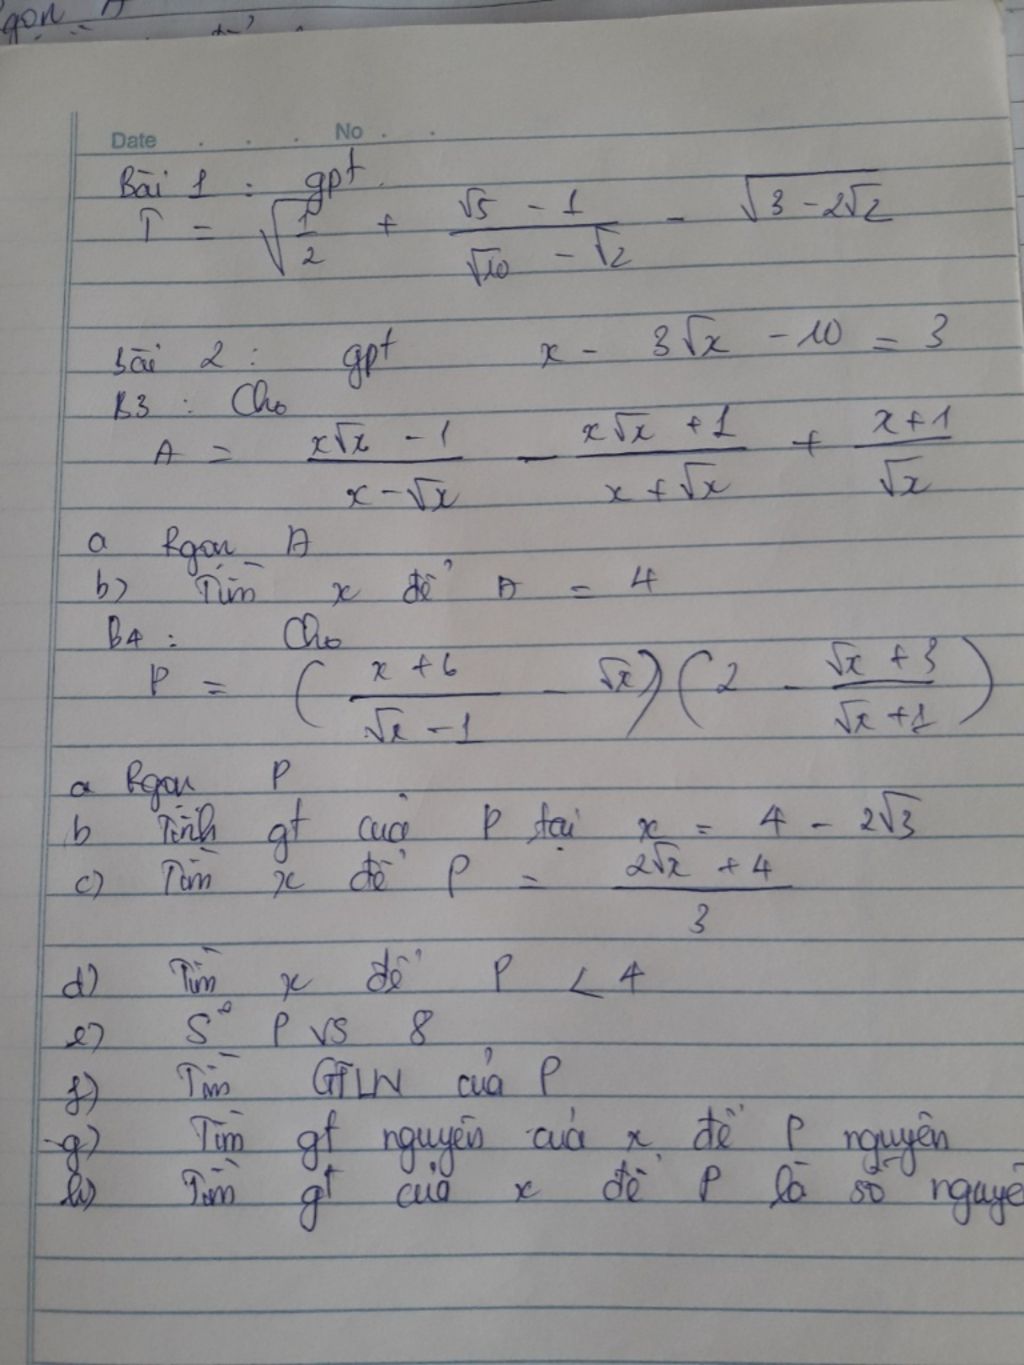 Date . . . No . .
Bài 1 : gpt
T = √(1/2) + (√5 - 1)/(√10 - √2) - √(3 - 2√2)
Bài 2 : gpt x - 3√x - 10 = 3
B3 : Cho
A = (x√x - 1)/(x - √x) - (x√x + 1)/(x + √x) + (x + 1)/√x
a Rgọn A
b) Tìm x để A = 4
B4 : Cho
P = ((x + 6)/(√x - 1) - √x)(2 - (√x + 3)/(√x + 1))
a Rgọn P
b Tính gt của P tại x = 4 - 2√3
c) Tìm x để P = (2√x + 4)/3
d) Tìm x để P < 4
e) S² P vs 8
f) Tìm GTLN của P
g) Tìm gt nguyên của x để P nguyên
h) Tìm gt của x để P là số nguyê